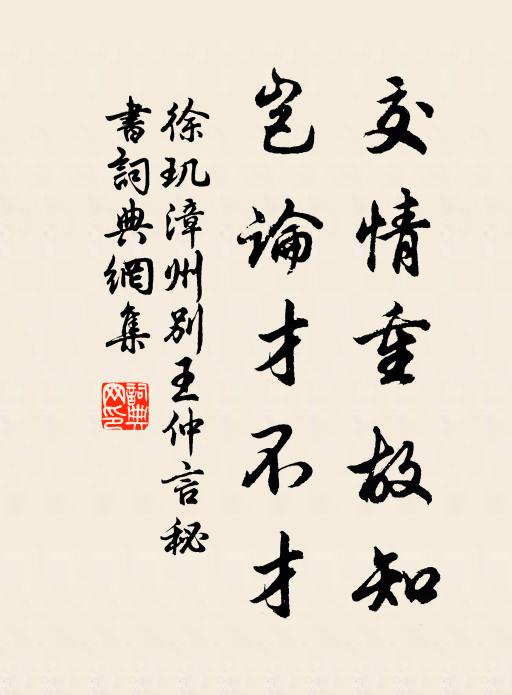 交情重故知
豈論才不才
徐璣漳州別王仲言秘
書詞典網集
詞典
网印